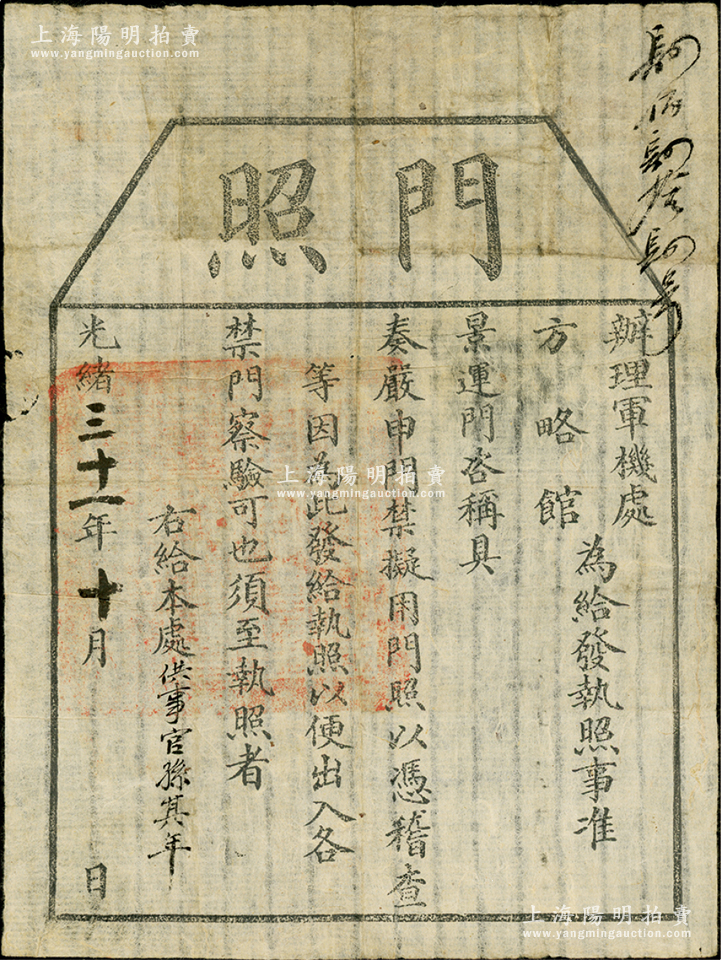 上海陽明拍賣
www.yangmingauction.com
門照
辦理軍機處
方略館
為給發執照事准
景運門咨稱具
奏嚴申門禁擬用門照以憑稽查
等因為此發給執照以便出入各
禁門察驗可也須至執照者
右給本處供事官孫其年
光緒三十一年十月 日
上海陽明拍賣
www.yangmingauction.com
上海陽明拍賣
www.yangmingauction.com